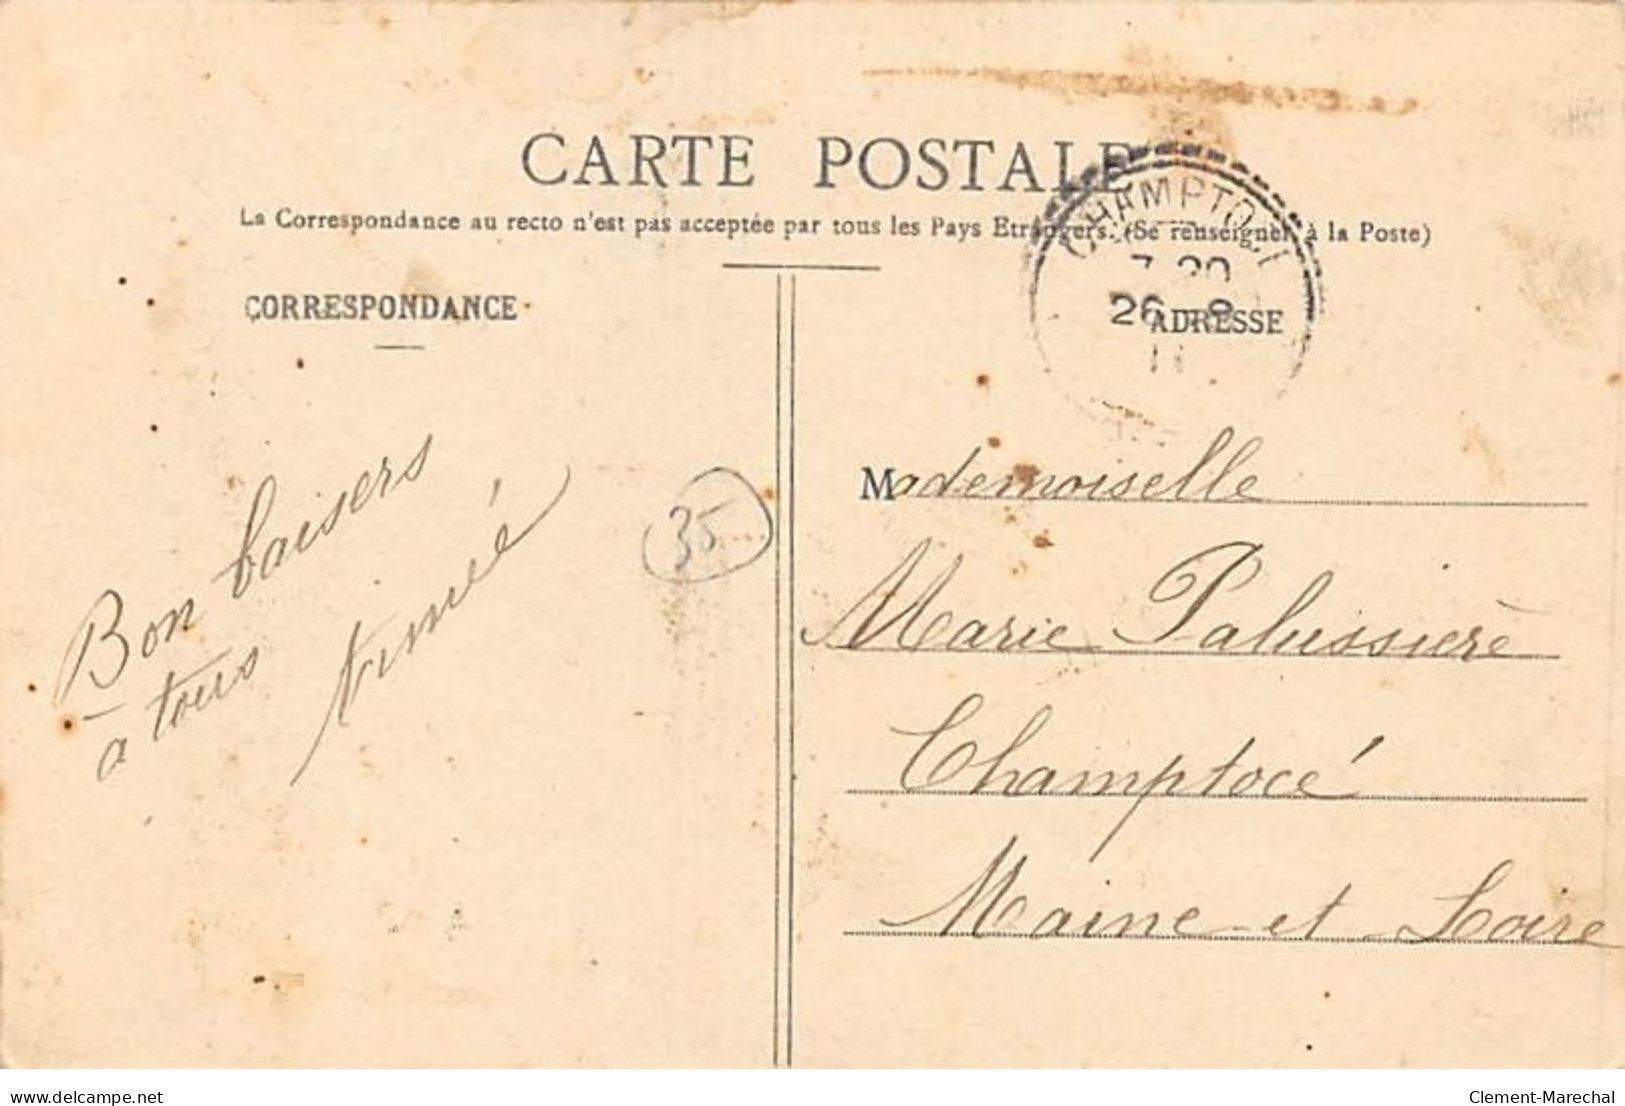 CARTE POSTALE
La Correspondance au recto n'est pas acceptée par tous les Pays Etrangers. (Se renseigner à la Poste)
CORRESPONDANCE
ADRESSE
CHAMPTOCÉ
7 20
26 - 8
11
Bon baisers
a tous
35
Mademoiselle
Marie Palussière
Champtocé
Maine et Loire
delcampe.net
Clement-Marechal